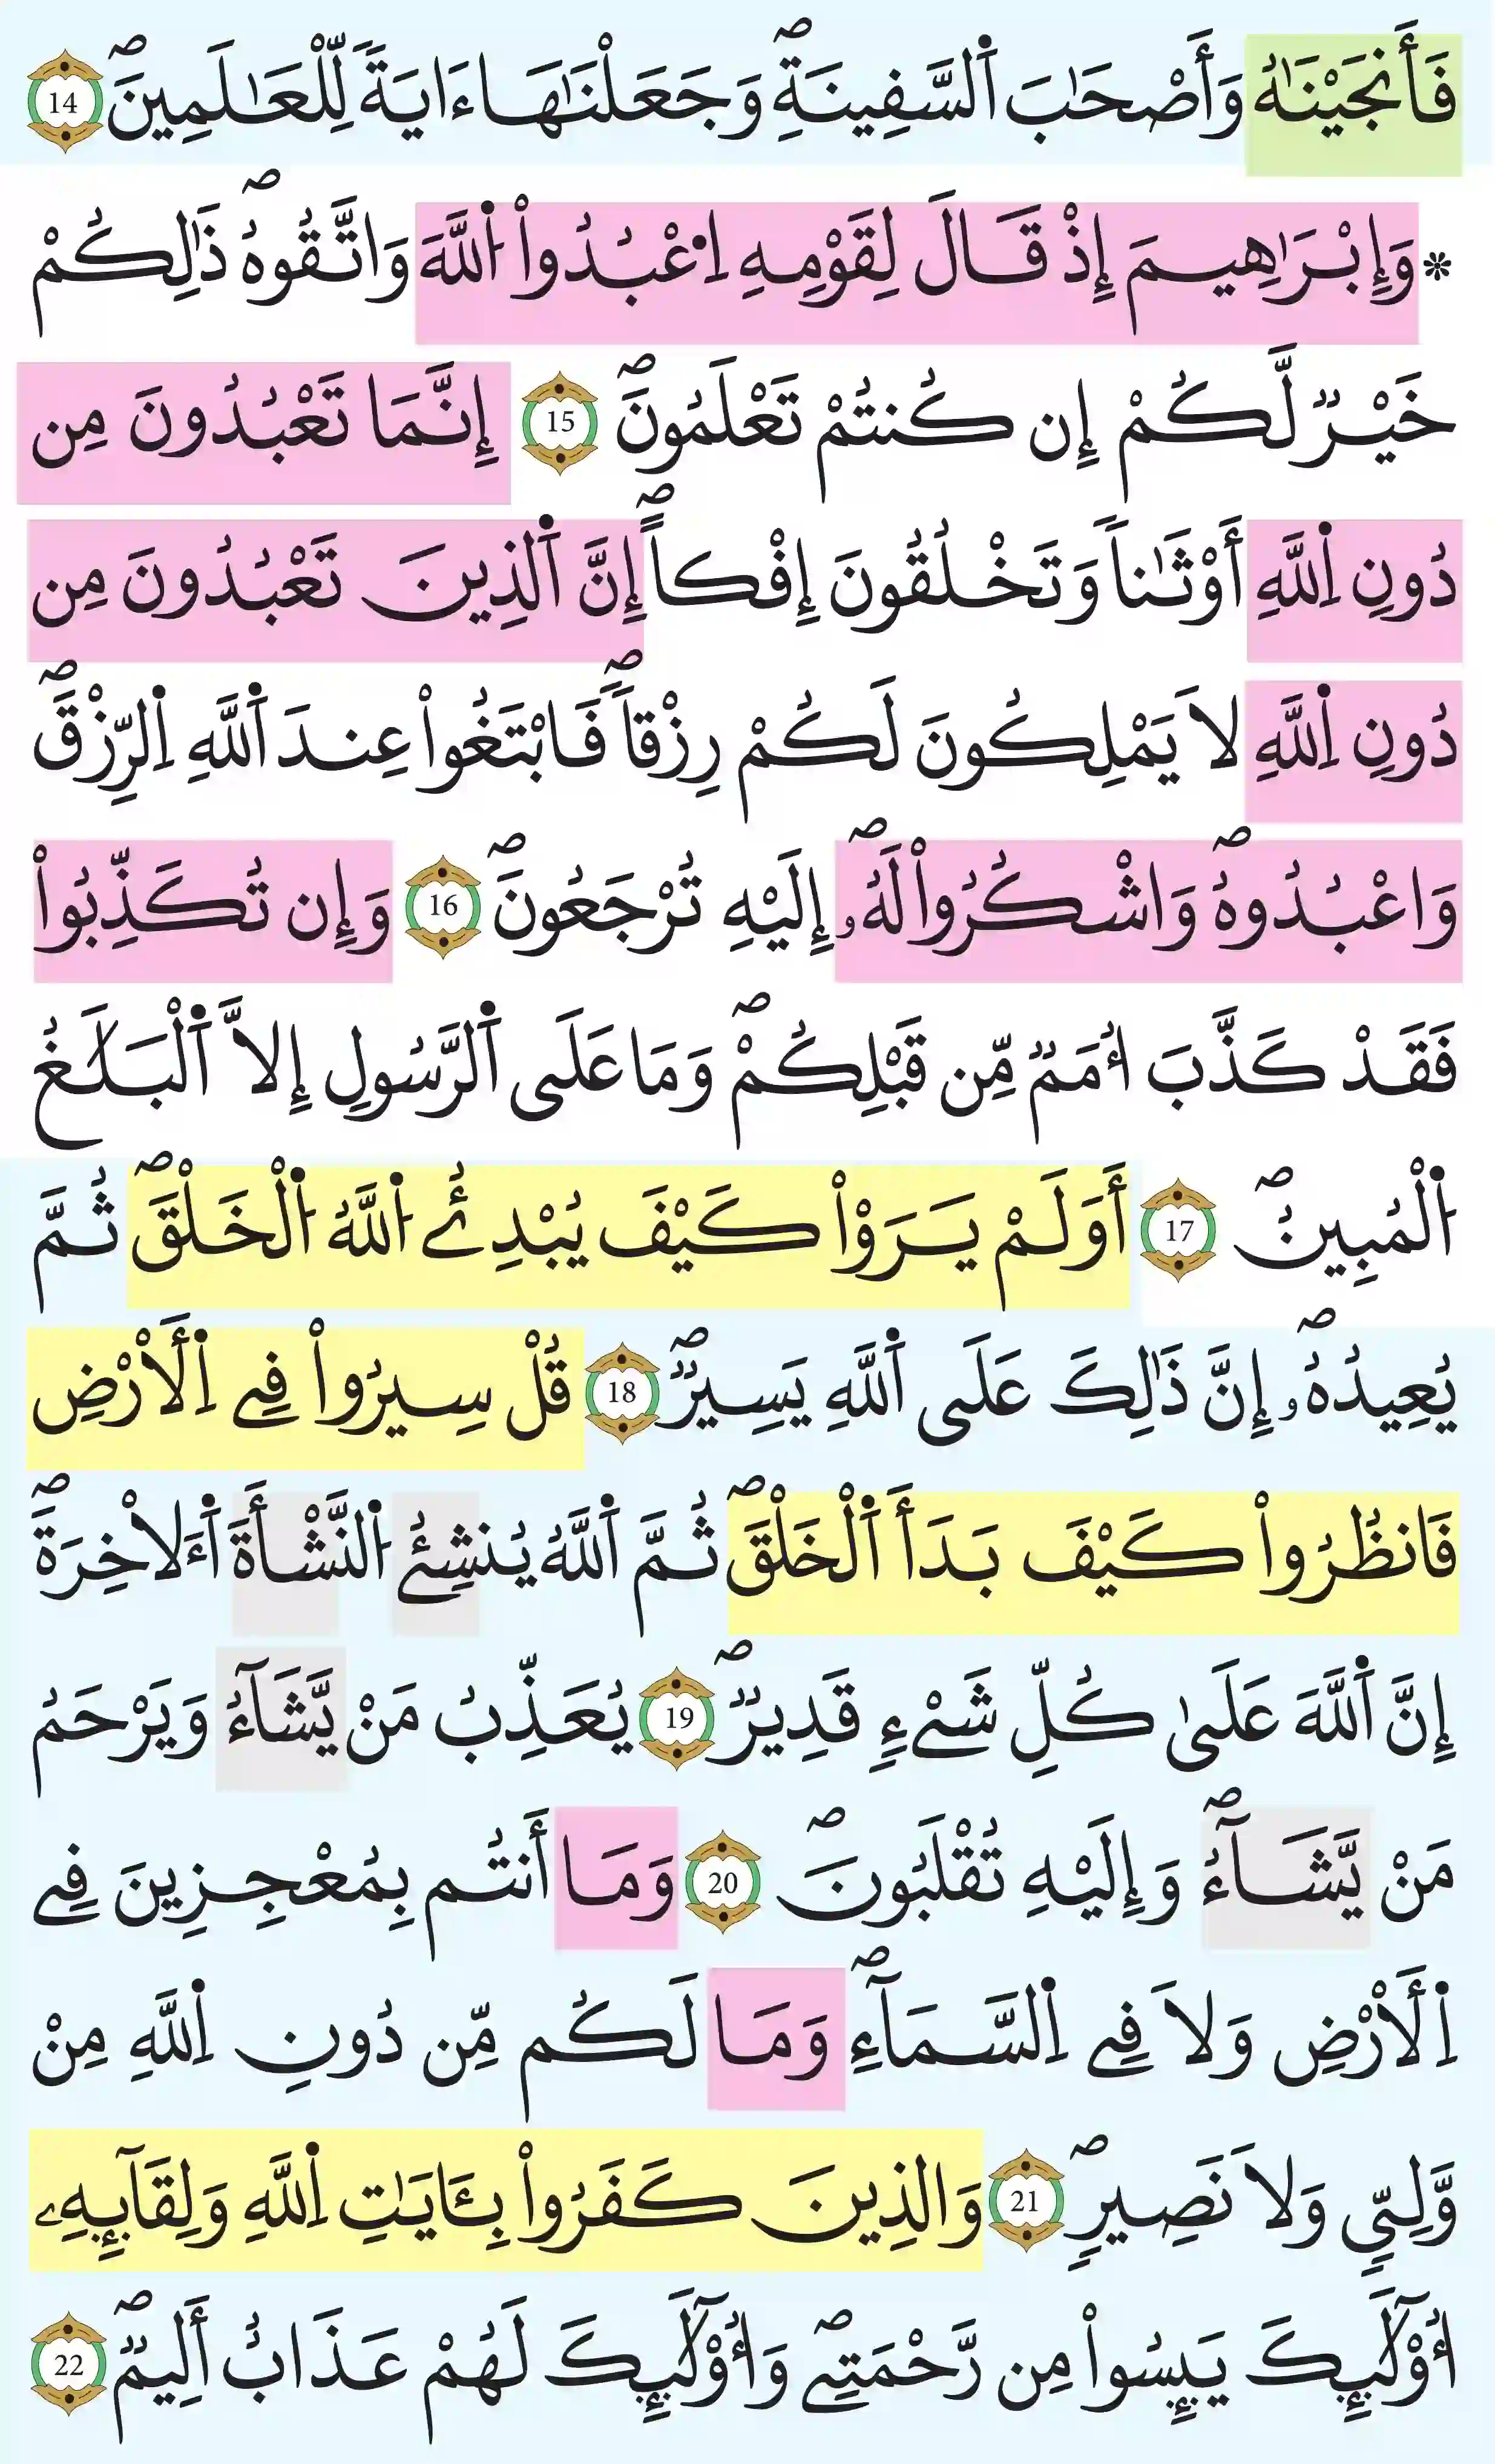 فَأَنجَيْنَٰهُ وَأَصْحَٰبَ اَ۬لسَّفِينَةِۖ وَجَعَلْنَٰهَا ءَايَةٗ لِّلْعَٰلَمِينَۖ 14
* وَإِبْرَٰهِيمَ إِذْ قَالَ لِقَوْمِهِ اِ۟عْبُدُواْ اُ۬للَّهَ وَاتَّقُوهُۖ ذَٰلِكُمْ
خَيْرٞ لَّكُمْ إِن كُنتُمْ تَعْلَمُونَۖ 15 إِنَّمَا تَعْبُدُونَ مِن
دُونِ اِ۬للَّهِ أَوْثَٰناٗ وَتَخْلُقُونَ إِفْكاًۖ إِنَّ اَ۬لذِينَ تَعْبُدُونَ مِن
دُونِ اِ۬للَّهِ لَا يَمْلِكُونَ لَكُمْ رِزْقاٗۖ فَابْتَغُواْ عِندَ اَ۬للَّهِ اِ۬لرِّزْقَۖ
وَاعْبُدُوهُۖ وَاشْكُرُواْ لَهُۥۖ إِلَيْهِ تُرْجَعُونَۖ 16 وَإِن تُكَذِّبُواْ
فَقَدْ كَذَّبَ أُمَمٞ مِّن قَبْلِكُمْۖ وَمَا عَلَى اَ۬لرَّسُولِ إِلَّا اَ۬لْبَلَٰغُ
اُ۬لْمُبِينُۖ 17 أَوَلَمْ يَرَوْاْ كَيْفَ يُبْدِئُ اُ۬للَّهُ اُ۬لْخَلْقَۖ ثُمَّ
يُعِيدُهُۥۖ إِنَّ ذَٰلِكَ عَلَى اَ۬للَّهِ يَسِيرٞۖ 18 قُلْ سِيرُواْ فِے اِ۬لَارْضِ
فَانظُرُواْ كَيْفَ بَدَأَ اَ۬لْخَلْقَۖ ثُمَّ اَ۬للَّهُ يُنشِئُ اُ۬لنَّشْأَةَ اَ۬لَاخِرَةَۖ
إِنَّ اَ۬للَّهَ عَلَىٰ كُلِّ شَےْءٖ قَدِيرٞۖ 19 يُعَذِّبُ مَنْ يَّشَآءُ وَيَرْحَمُ
مَنْ يَّشَآءُۖ وَإِلَيْهِ تُقْلَبُونَۖ 20 وَمَا أَنتُم بِمُعْجِزِينَ فِے
اِ۬لَارْضِ وَلَا فِے اِ۬لسَّمَآءِۖ وَمَا لَكُم مِّن دُونِ اِ۬للَّهِ مِنْ
وَّلِيّٖ وَلَا نَصِيرٖۖ 21 وَالذِينَ كَفَرُواْ بِـَٔايَٰتِ اِ۬للَّهِ وَلِقَآئِهِۦ
أُوْلَٰٓئِكَ يَئِسُواْ مِن رَّحْمَتِےۖ وَأُوْلَٰٓئِكَ لَهُمْ عَذَابٌ أَلِيمٞۖ 22